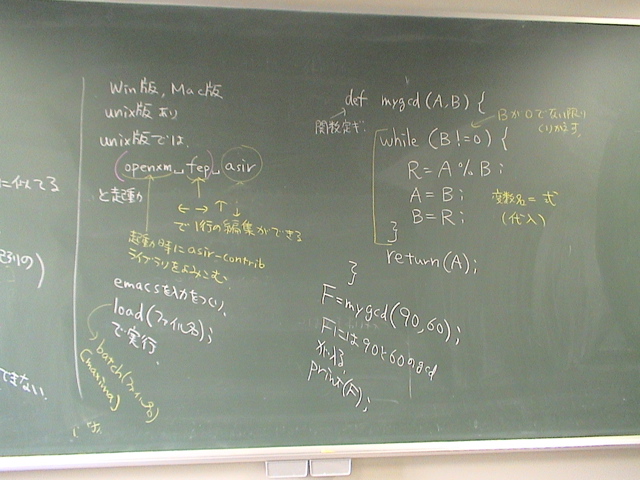 に似てる
できない
Win版, Mac版
unix版あり
unix版では
openxm␣fep␣asir
と起動
← → ↑ ↓
で1行の編集ができる
起動時にasir-contrib
ライブラリをよみこむ.
emacsを入力をつくり,
load(ファイル名);
で実行.
batch(ファイル名)
(maxima)
def mygcd(A,B) {
関数定ぎ.
Bが0でない限り
くりかえす,
while (B!=0) {
R=A%B;
A=B;
B=R;
変数名=式
(代入)
}
return(A);
}
F=mygcd(90,60);
Fには90と60のgcd
が入る.
print(F);